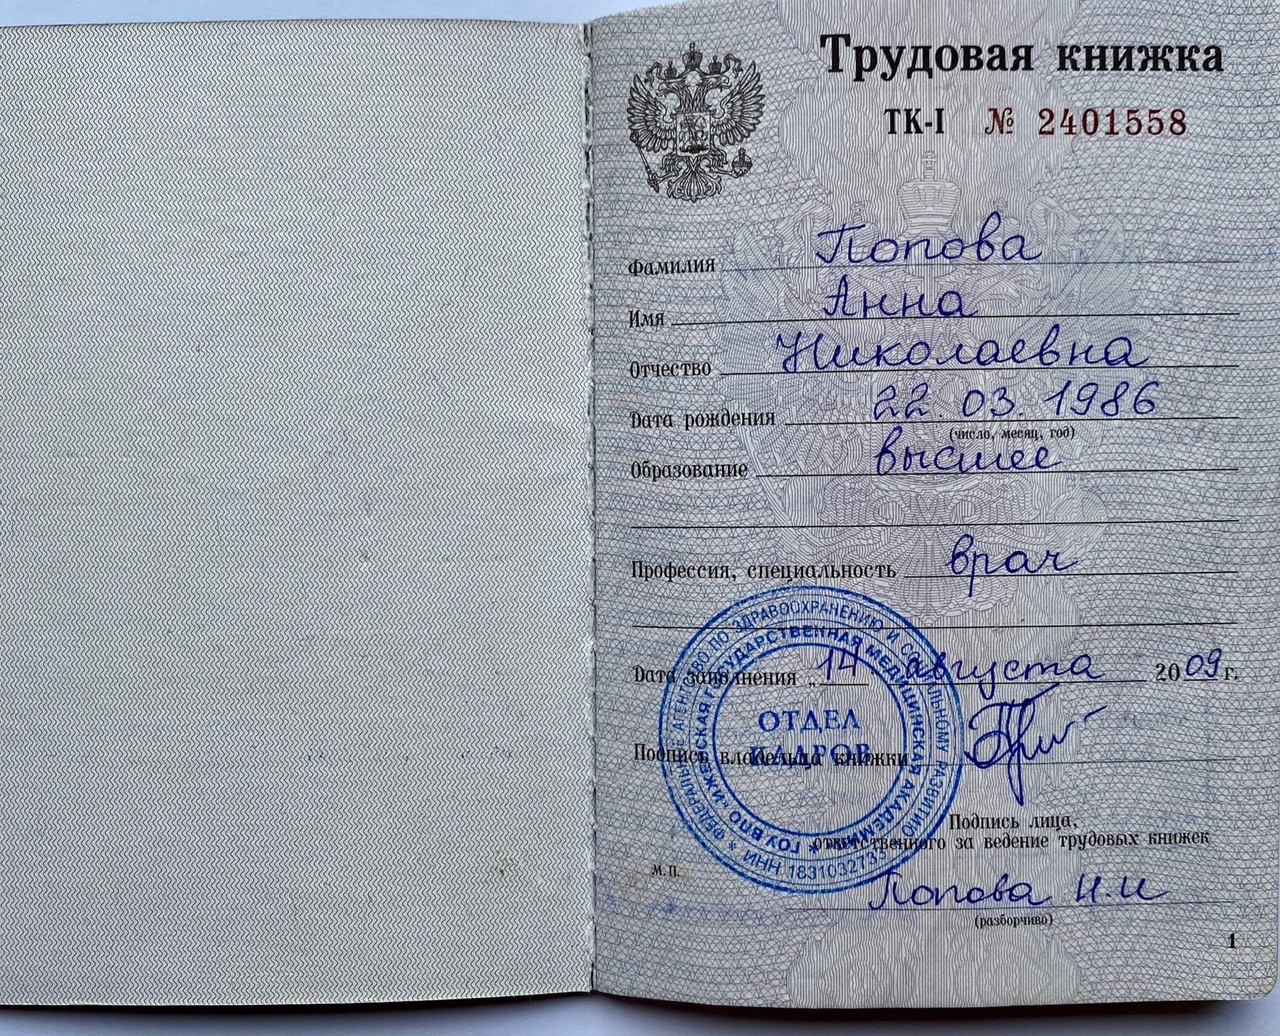 Трудовая книжка
ТК-I № 2401558
Фамилия Попова
Имя Анна
Отчество Николаевна
Дата рождения 22.03.1986
(число, месяц, год)
Образование высшее
Профессия, специальность врач
Дата заполнения „14 августа 2009 г.
Подпись владельца книжки
Подпись лица,
ответственного за ведение трудовых книжек
М.П.
Попова Н.И
(разборчиво)
1
ФЕДЕРАЛЬНОЕ АГЕНТСТВО ПО ЗДРАВООХРАНЕНИЮ И СОЦИАЛЬНОМУ РАЗВИТИЮ
ГОУ ВПО «ИЖЕВСКАЯ ГОСУДАРСТВЕННАЯ МЕДИЦИНСКАЯ АКАДЕМИЯ»
ОТДЕЛ
КАДРОВ
ИНН